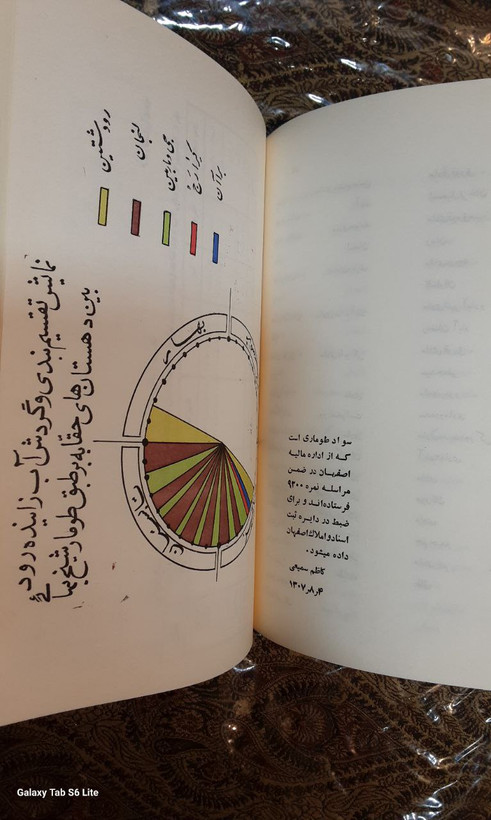 نمایش تقسیم بندی و گردش آب زاینده رود
بین دهستان های حقابه بر طبق طومار شیخ بهائی
رودشتین
لنجان
جی و ماربین
کرارج
براآن
بهار
تابستان
سواد طوماری است
که از اداره مالیه
اصفهان در ضمن
مراسله نمره ۹۳۰۰
فرستاده‌اند و برای
ضبط در دایره ثبت
اسناد و املاک اصفهان
داده میشود.
کاظم سمیعی
۴ر۸ر۱۳۰۷
Galaxy Tab S6 Lite